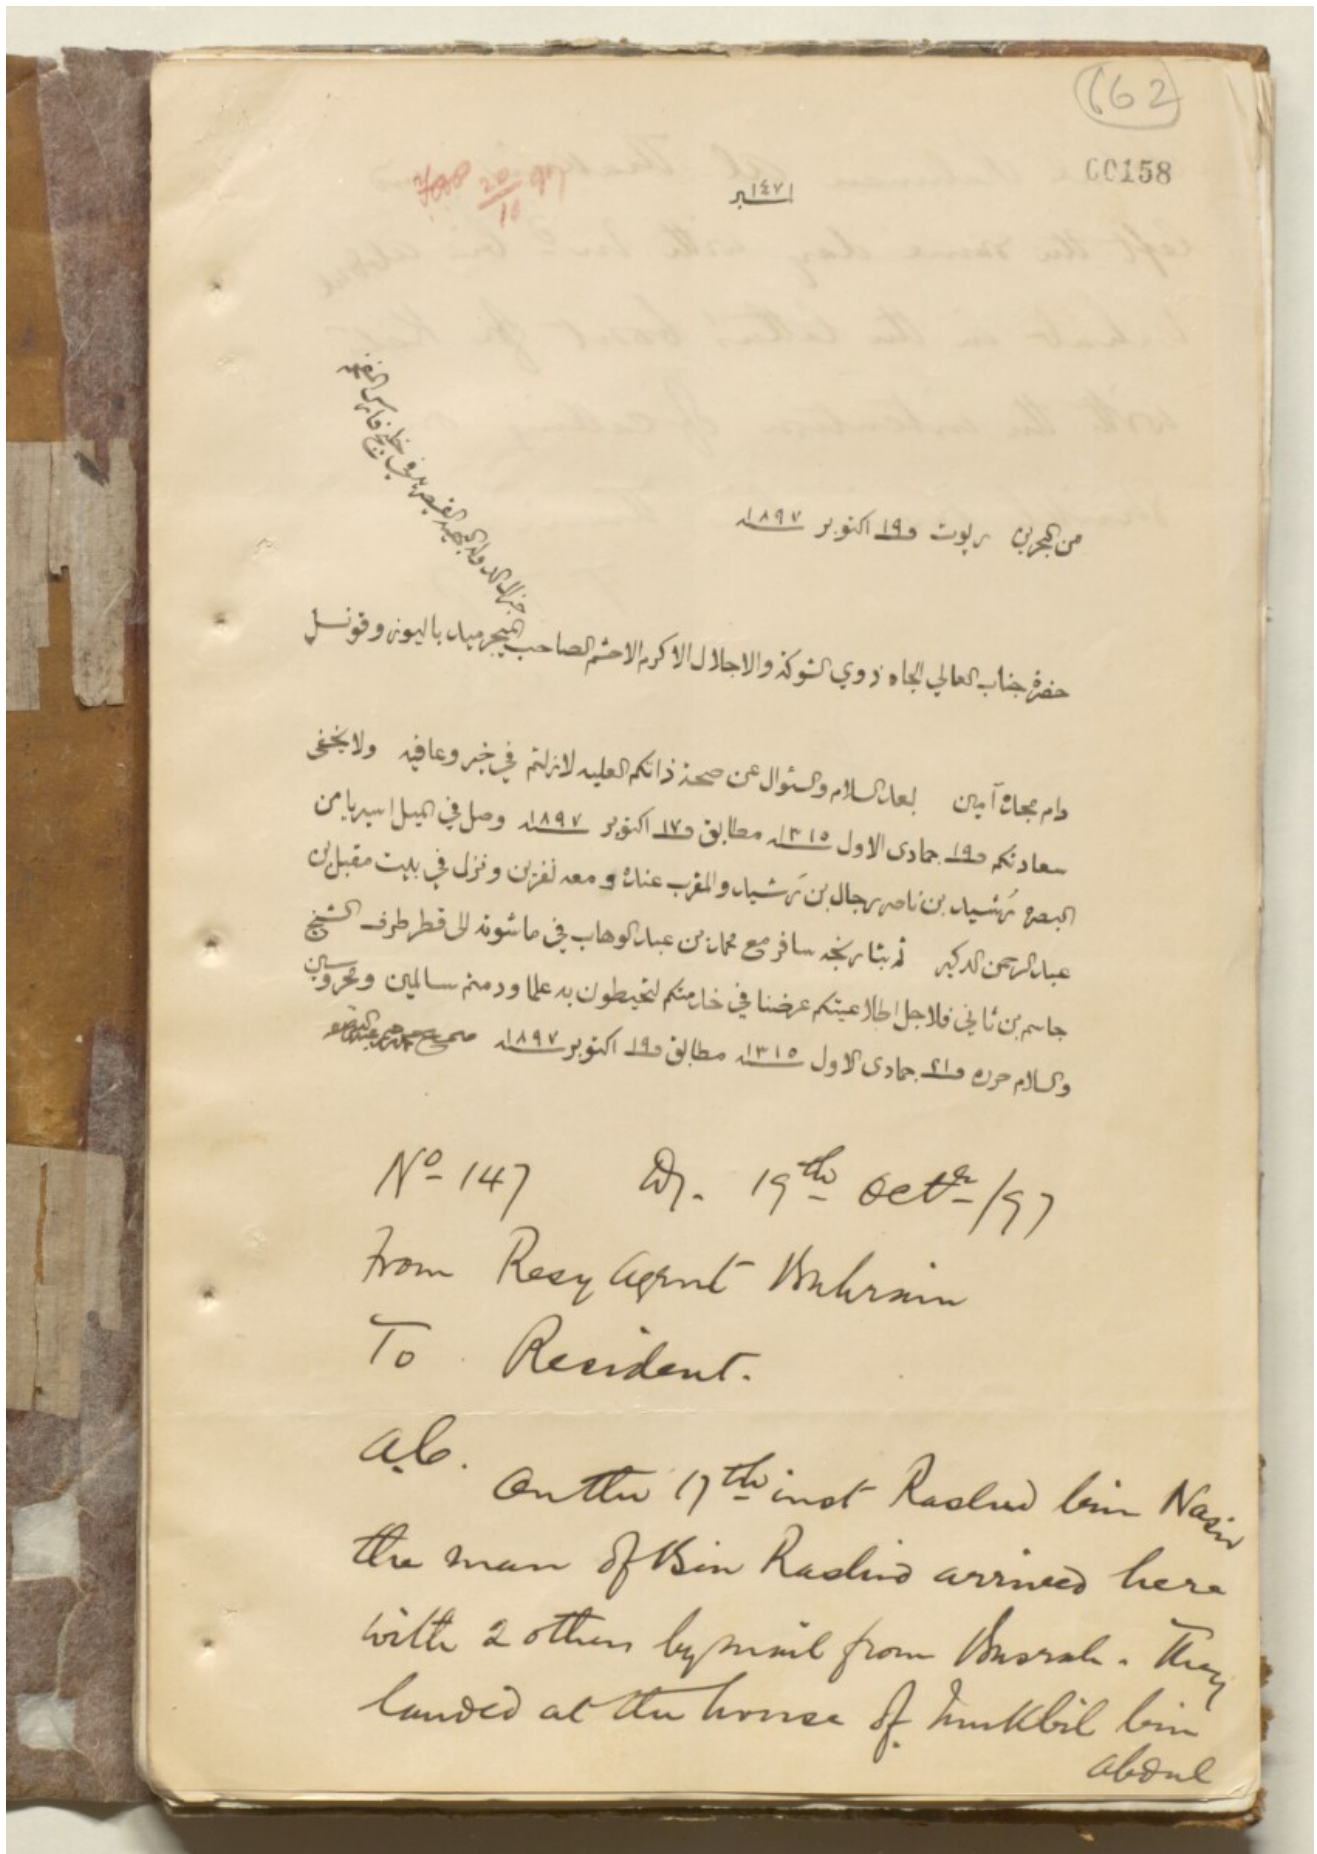 162
00158
نمبر ١٤٧
20/10 97
من البحرين ربوت و ١٩ اكتوبر سنه ١٨٩٧
حضرة جناب العالي الجاه ذوي الشوكة والاجلال الاكرم الاحشم الصاحب الميجر ميد باليوز وقونسل
جنرال الدولة البهية القيصرية في خليج فارس المفخم
دام مجده آمين بعد السلام والسئوال عن صحة ذاتكم العليه لازلتم في خير وعافيه ولا يخفى
سعادتكم و ١٩ جمادى الاول سنه ١٣١٥ مطابق و ١٧ اكتوبر سنه ١٨٩٧ وصل في الميل اسيريا من
البصره رشيد بن ناصر رجال بن رشيد والمقرب عنده و معه نفرين ونزل في بيت مقبل بن
عبد الرحمن الذكير ثم بتاريخه سافر مع محمد بن عبد الوهاب في ماشوة الى قطر طرف الشيخ
جاسم بن ثاني فلاجل اطلاعيتكم عرضنا في خدمتكم لتحيطون به علما ودمتم سالمين ومحروسين
والسلام حرره و ٢١ جمادى الاول سنه ١٣١٥ مطابق و ١٩ اكتوبر سنه ١٨٩٧ صحيح
No 147 D/. 19th Octr /97
From Resy Agent Bahrain
To Resident.
A.C.
On the 17th inst Rashid bin Nasir
the man of Bin Rashid arrived here
with 2 others by mail from Busrah. They
landed at the house of Mukbil bin
Abdul